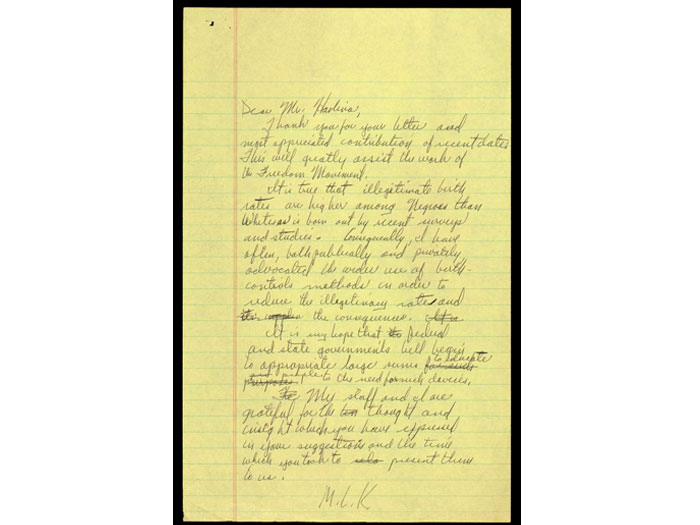 Dear Mr. Havlina,
Thank you for your letter and
most appreciated contribution of recent date.
This will greatly assist the work of
the Freedom Movement.
It is true that illegitimate birth
rates are higher among Negroes than
Whites as is born out by recent surveys
and studies. Consequently, I have
often, both publically and privately
advocated the wider use of birth-
controls methods in order to
reduce the illegitimacy rates and
the consequences.
It is my hope that federal
and state governments will begin
to appropriate large sums to educate
people to the need for such devices.
My staff and I are
grateful for the thought and
insight which you have expressed
in your suggestions and the time
which you took to present them
to us.
M.L.K